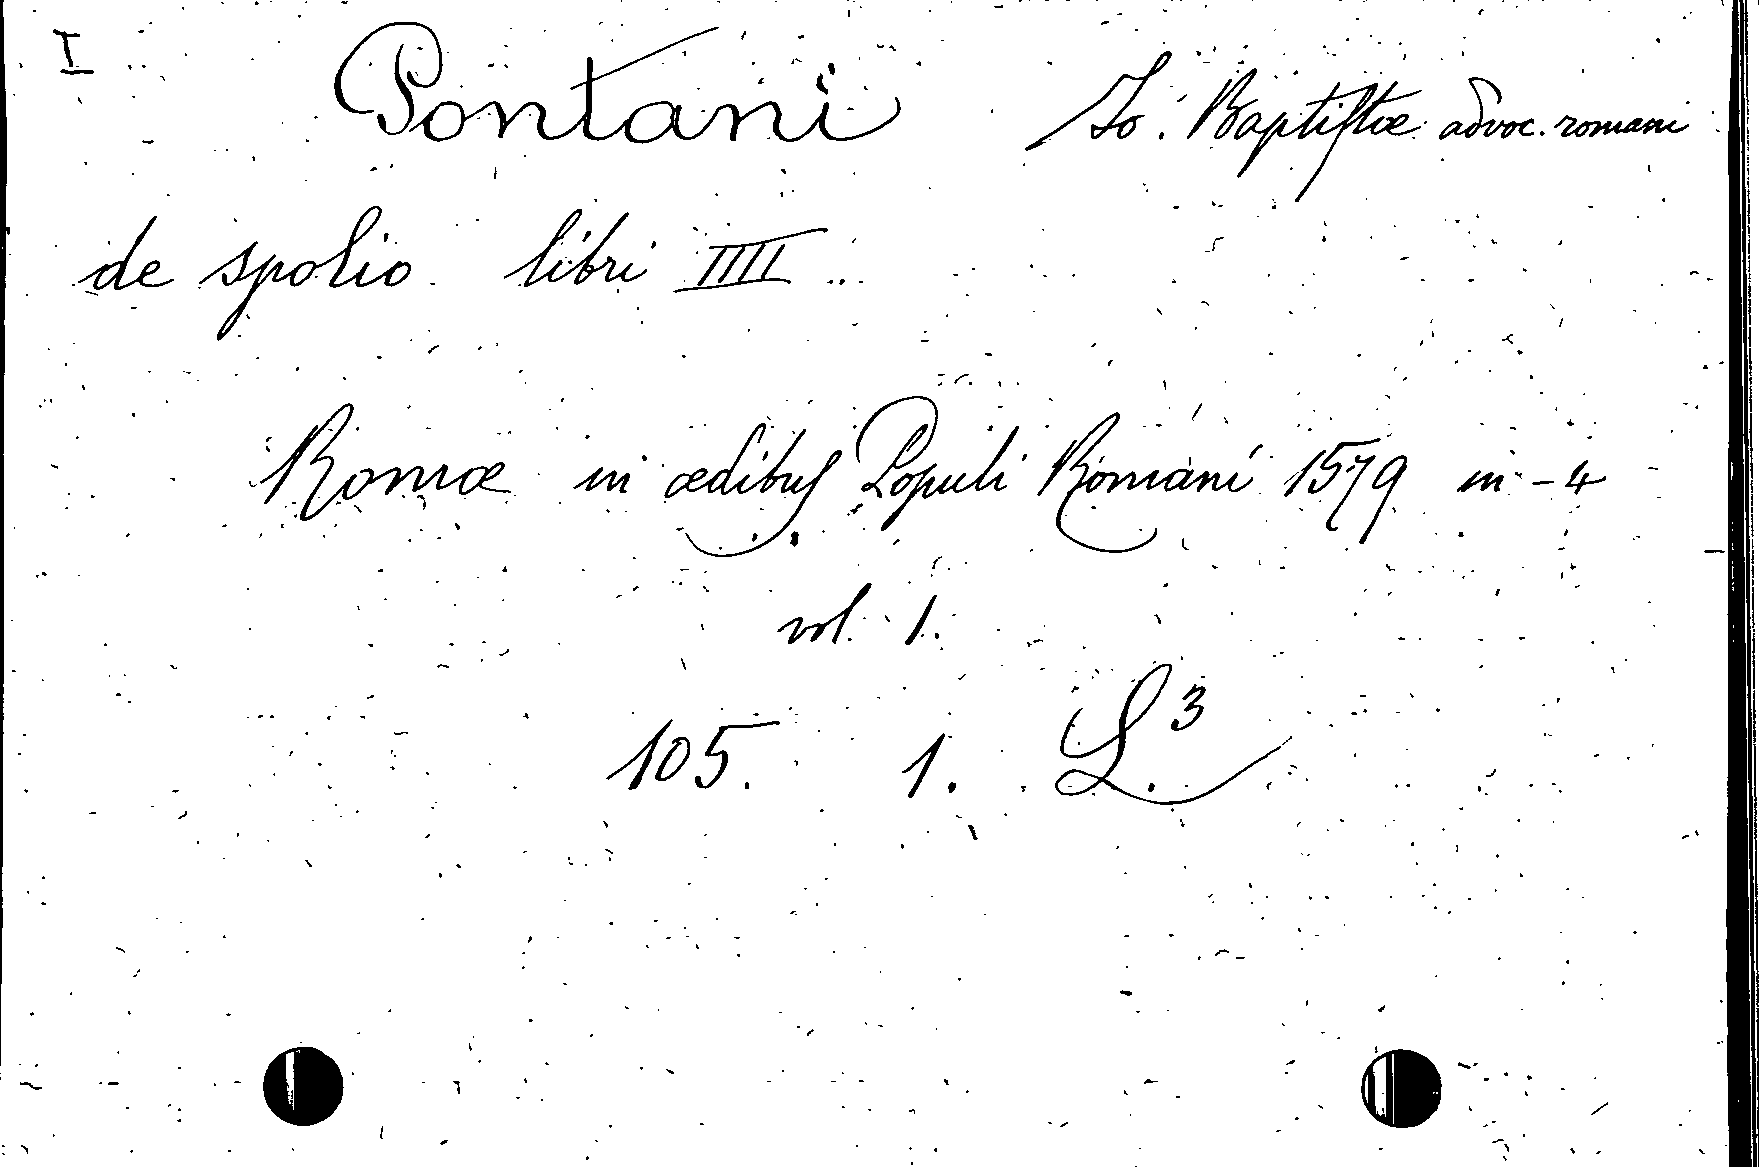 I
Pontani Jo. Baptistæ advoc. romani
de spolio libri IIII
Romæ in ædibus Populi Romani 1579 in-4
vol. 1.
105. 1. L.3